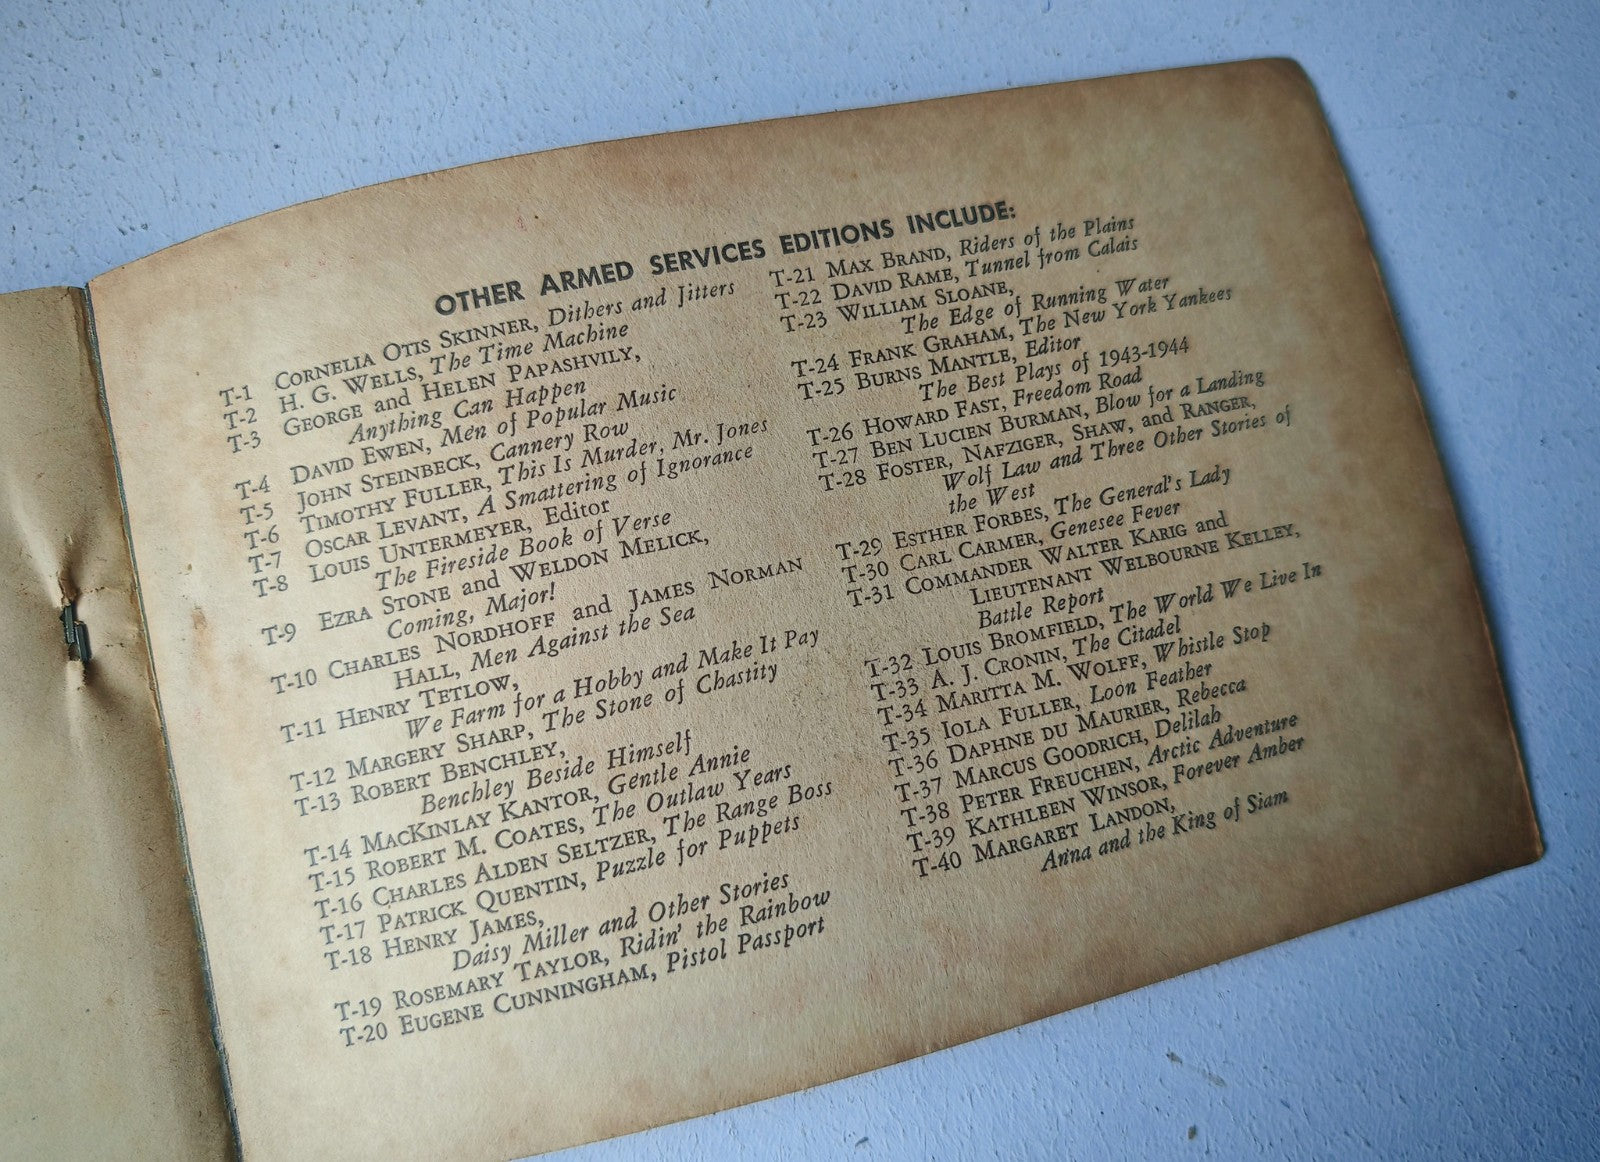 OTHER ARMED SERVICES EDITIONS INCLUDE:
T-1 CORNELIA OTIS SKINNER, Dithers and Jitters
T-2 H. G. WELLS, The Time Machine
T-3 GEORGE and HELEN PAPASHVILY,
Anything Can Happen
T-4 DAVID EWEN, Men of Popular Music
T-5 JOHN STEINBECK, Cannery Row
T-6 TIMOTHY FULLER, This Is Murder, Mr. Jones
T-7 OSCAR LEVANT, A Smattering of Ignorance
T-8 LOUIS UNTERMEYER, Editor
The Fireside Book of Verse
T-9 EZRA STONE and WELDON MELICK,
Coming, Major!
T-10 CHARLES NORDHOFF and JAMES NORMAN
HALL, Men Against the Sea
T-11 HENRY TETLOW,
We Farm for a Hobby and Make It Pay
T-12 MARGERY SHARP, The Stone of Chastity
T-13 ROBERT BENCHLEY,
Benchley Beside Himself
T-14 MACKINLAY KANTOR, Gentle Annie
T-15 ROBERT M. COATES, The Outlaw Years
T-16 CHARLES ALDEN SELTZER, The Range Boss
T-17 PATRICK QUENTIN, Puzzle for Puppets
T-18 HENRY JAMES,
Daisy Miller and Other Stories
T-19 ROSEMARY TAYLOR, Ridin' the Rainbow
T-20 EUGENE CUNNINGHAM, Pistol Passport
T-21 MAX BRAND, Riders of the Plains
T-22 DAVID RAME, Tunnel from Calais
T-23 WILLIAM SLOANE,
The Edge of Running Water
T-24 FRANK GRAHAM, The New York Yankees
T-25 BURNS MANTLE, Editor
The Best Plays of 1943-1944
T-26 HOWARD FAST, Freedom Road
T-27 BEN LUCIEN BURMAN, Blow for a Landing
T-28 FOSTER, NAFZIGER, SHAW, and RANGER,
Wolf Law and Three Other Stories of
the West
T-29 ESTHER FORBES, The General's Lady
T-30 CARL CARMER, Genesee Fever
T-31 COMMANDER WALTER KARIG and
LIEUTENANT WELBOURNE KELLEY,
Battle Report
T-32 LOUIS BROMFIELD, The World We Live In
T-33 A. J. CRONIN, The Citadel
T-34 MARITTA M. WOLFF, Whistle Stop
T-35 IOLA FULLER, Loon Feather
T-36 DAPHNE DU MAURIER, Rebecca
T-37 MARCUS GOODRICH, Delilah
T-38 PETER FREUCHEN, Arctic Adventure
T-39 KATHLEEN WINSOR, Forever Amber
T-40 MARGARET LANDON,
Anna and the King of Siam